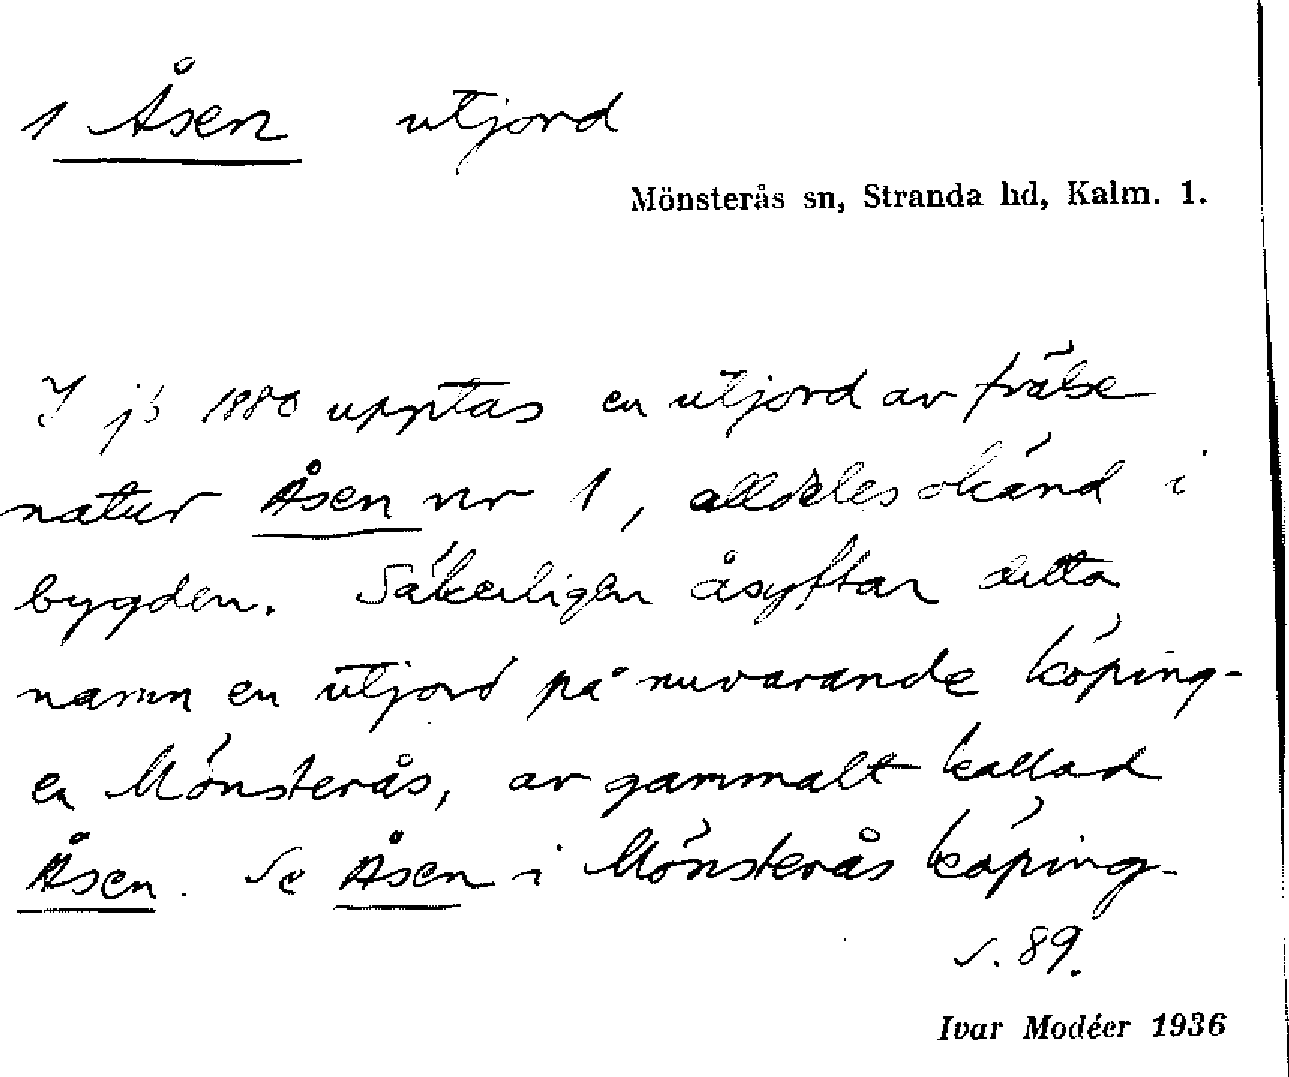 1 Åsen utjord
Mönsterås sn, Stranda hd, Kalm. 1.
I jb 1880 upptas en utjord av frälse
natur Åsen nr 1, alldeles okänd i
bygden. Säkerligen åsyftar detta
namn en utjord på nuvarande köping-
en Mönsterås, av gammalt kallad
Åsen. Se Åsen i Mönsterås köping
s. 89.
Ivar Modéer 1936